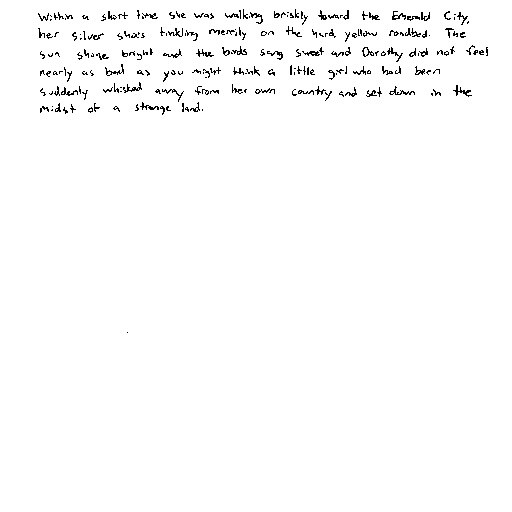 Within a short time she was walking briskly toward the Emerald City,
her Silver Shoes tinkling merrily on the hard, yellow roadbed. The
sun shone bright and the birds sang sweet and Dorothy did not feel
nearly as bad as you might think a little girl who had been
suddenly whisked away from her own country and set down in the
midst of a strange land.